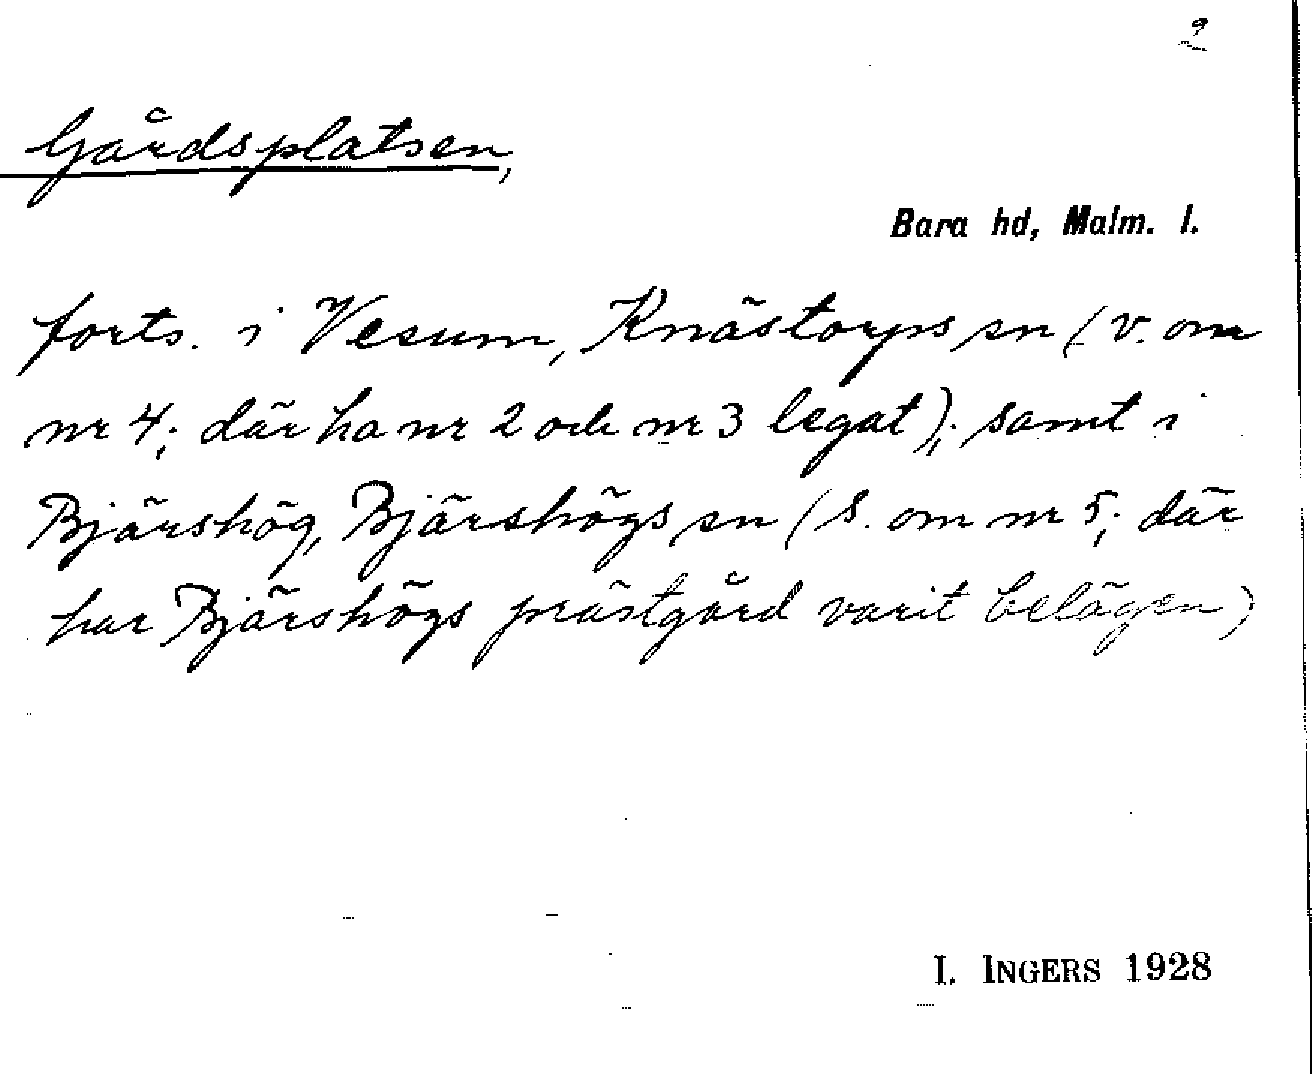 2
Gårdsplatsen,
Bara hd, Malm. l.
forts. i Vesum, Knästorps sn (v. om
nr 4; där ha nr 2 och nr 3 legat); samt i
Bjärshög, Bjärshögs sn (s. om nr 5; där
har Bjärshögs prästgård varit belägen)
I. INGERS 1928